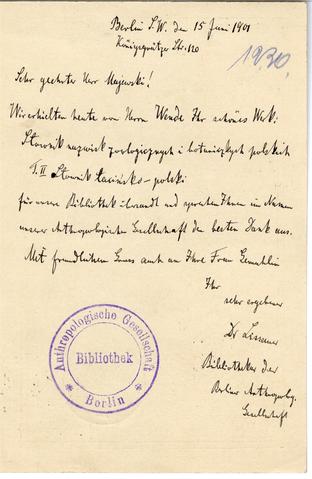 Berlin S.W. den 15 Juni 1901
Königgrätzer Str. 120
1230.
Sehr geehrter Herr Majewski!
Wir erhielten heute von Herrn Wende Ihr schönes Werk:
Słownik nazwisk zoologicznych i botanicznych polskich
T. II Słownik łacińsko-polski
für unsere Bibliothek übersandt und sprechen Ihnen im Namen
unserer Anthropologischen Gesellschaft den besten Dank aus.
Mit freundlichem Gruss auch an Ihre Frau Gemahlin
Ihr
sehr ergebener
Dr Lissauer
Bibliothekar der
Berliner Anthropolog.
Gesellschaft
Anthropologische Gesellschaft
Bibliothek
Berlin